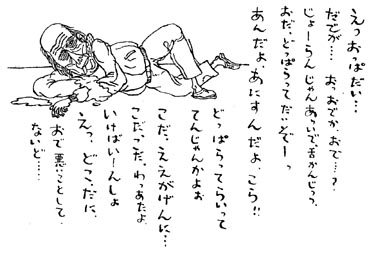 えっおっぱだい…
だでが… おっおでか、おで…?
じょーらんじゃんあっいで舌かんじっつ、
おだ、どっぱらってだいどでーっ
あんだよ、あにすんだよ、こら!!
どっぱらってらいって
てんじゃんかよお
こだ、ええがげんに…
こだ、こだ。わっあたよ
いけばい〜んしょ
えっ、どこ、だに、
おで悪いことして、
ないど……